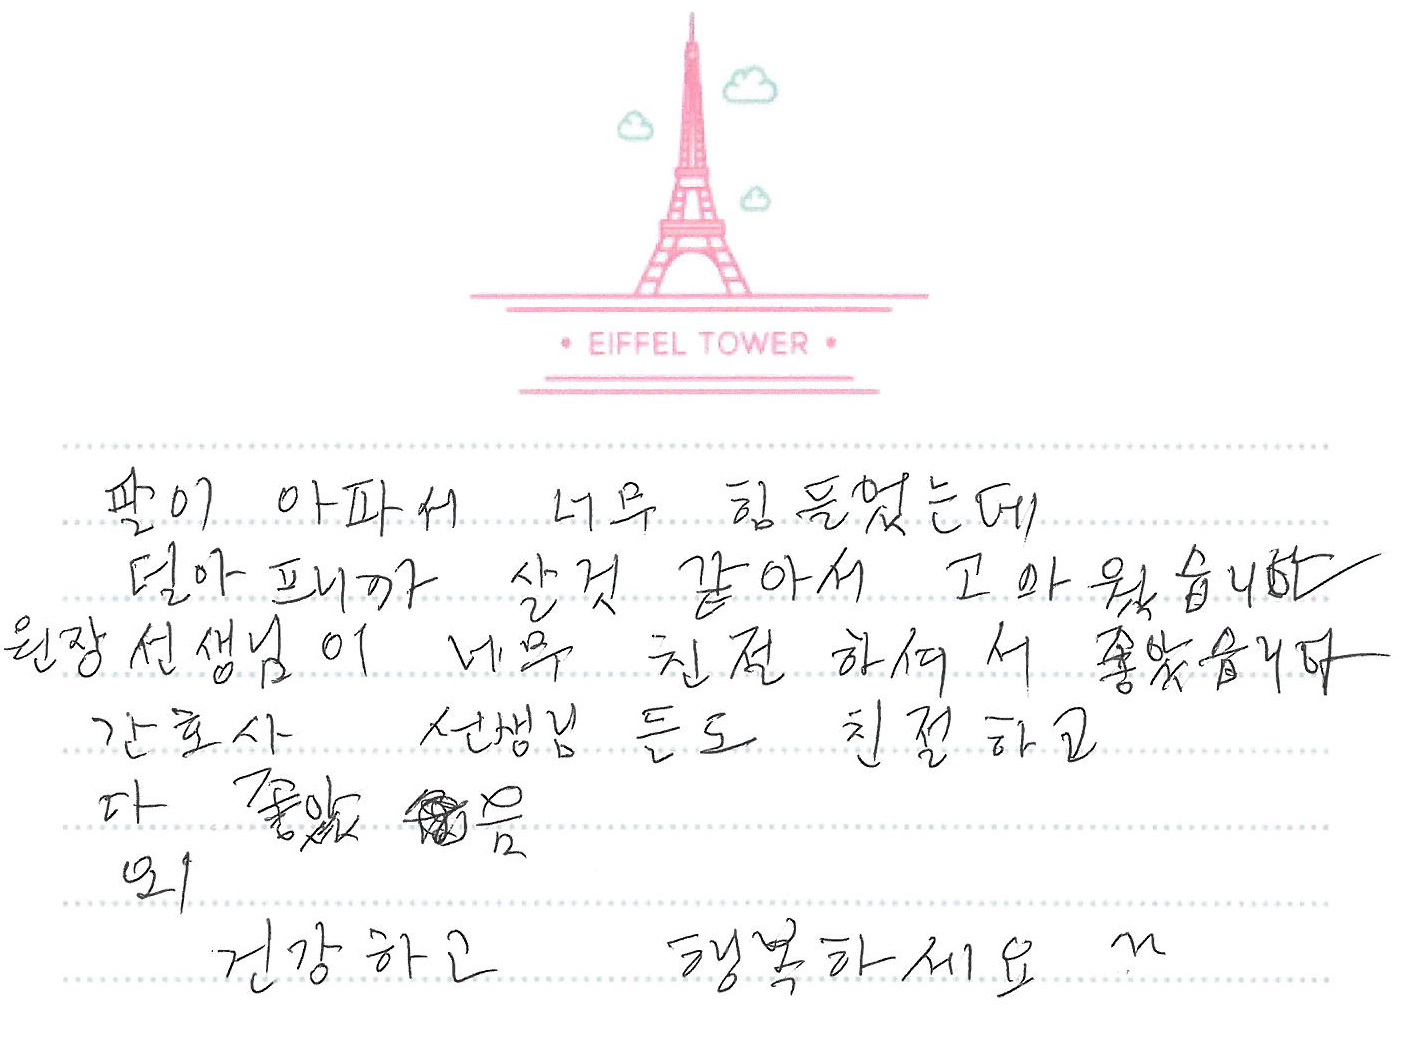 • EIFFEL TOWER •
팔이 아파서 너무 힘들었는데
덜아프니까 살것 같아서 고마웠습니다
원장선생님이 너무 친절하셔서 좋았습니다
간호사 선생님 든도 친절하고
다 좋았음
외
건강하고 행복하세요 ^^